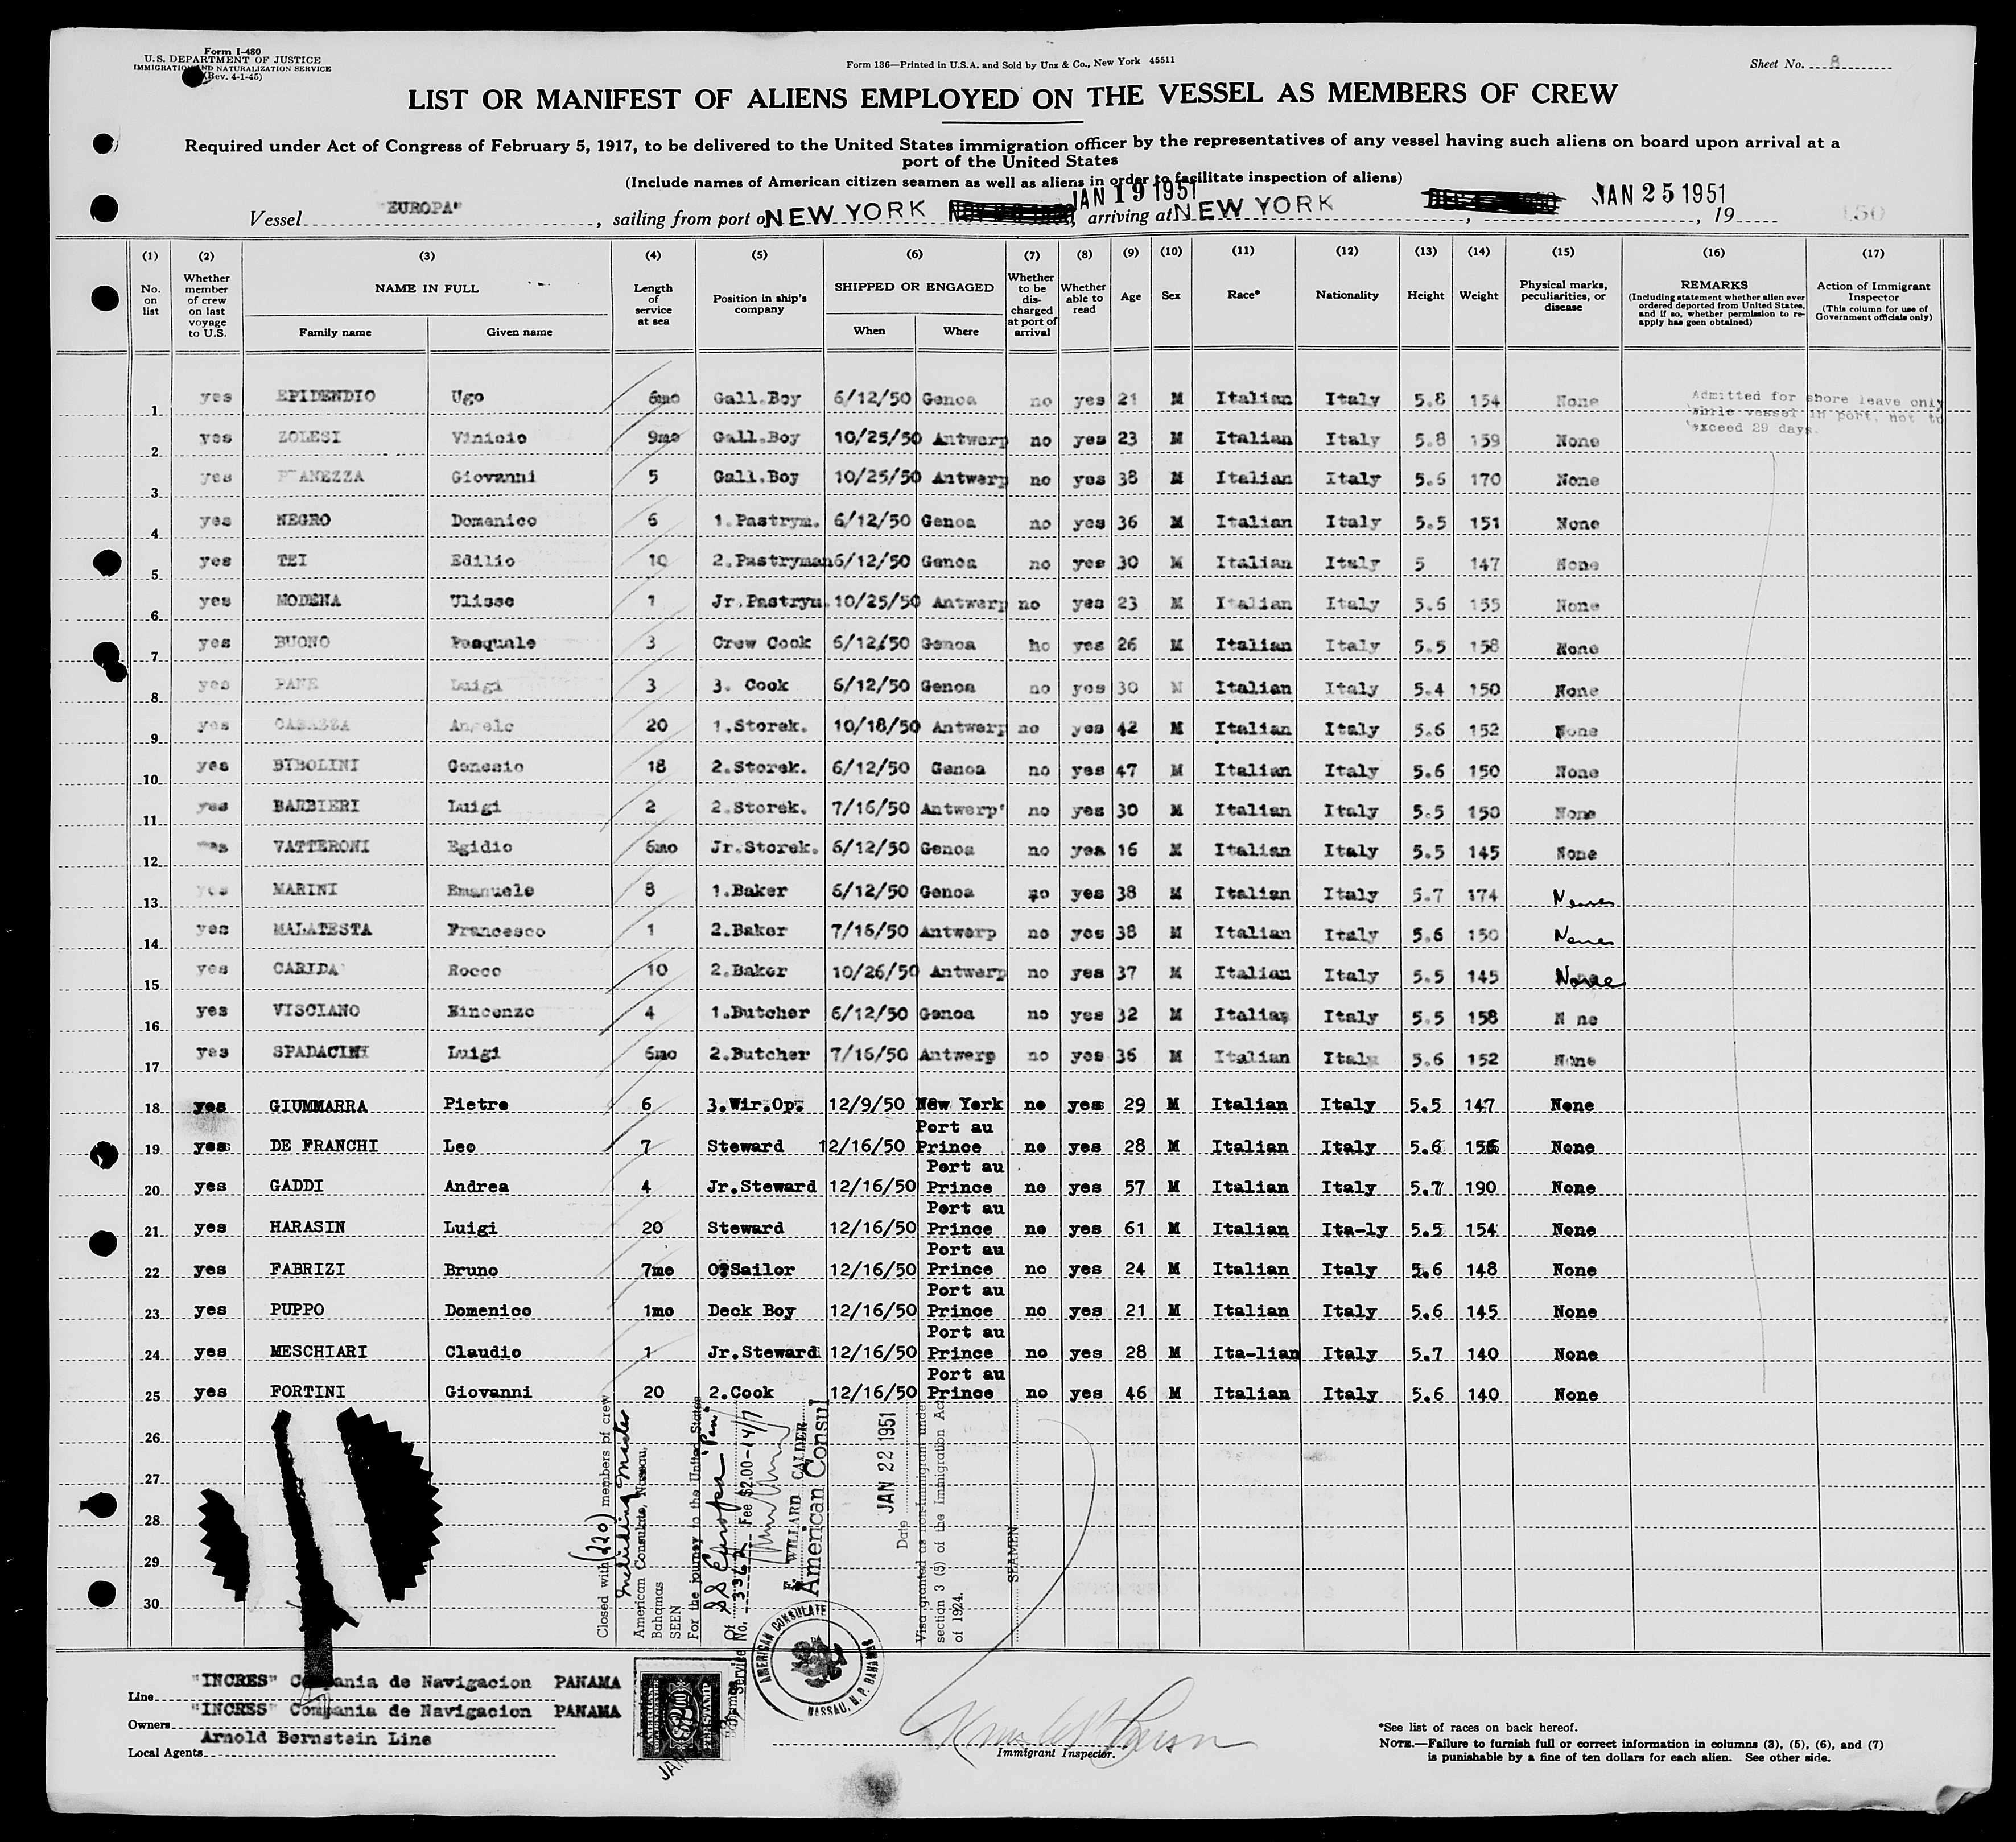 Form I-480
U.S. DEPARTMENT OF JUSTICE
IMMIGRATION AND NATURALIZATION SERVICE
(Rev. 4-1-45)
Form 136—Printed in U.S.A. and Sold by Unz & Co., New York 45511
Sheet No. 8
LIST OR MANIFEST OF ALIENS EMPLOYED ON THE VESSEL AS MEMBERS OF CREW
Required under Act of Congress of February 5, 1917, to be delivered to the United States immigration officer by the representatives of any vessel having such aliens on board upon arrival at a
port of the United States
(Include names of American citizen seamen as well as aliens in order to facilitate inspection of aliens)
Vessel "EUROPA", sailing from port of NEW YORK JAN 19 1951, arriving at NEW YORK, JAN 25 1951, 19 150
(1) (2) (3) (4) (5) (6) (7) (8) (9) (10) (11) (12) (13) (14) (15) (16) (17)
No. on list
Whether member of crew on last voyage to U.S.
NAME IN FULL
Family name
Given name
Length of service at sea
Position in ship's company
SHIPPED OR ENGAGED
When
Where
Whether to be discharged at port of arrival
Whether able to read
Age
Sex
Race*
Nationality
Height
Weight
Physical marks, peculiarities, or disease
REMARKS
(Including statement whether alien ever ordered deported from United States, and if so, whether permission to re-apply has geen obtained)
Action of Immigrant Inspector
(This column for use of Government officials only)
1 yes EPIDENDIO Ugo 6mo Gall.Boy 6/12/50 Genoa no yes 21 M Italian Italy 5.8 154 None
Admitted for shore leave only
while vessel in port, not to
exceed 29 days.
2 yes ZOLESI Vinicio 9mo Gall.Boy 10/25/50 Antwerp no yes 23 M Italian Italy 5.8 159 None
3 yes ANEZZA Giovanni 5 Gall.Boy 10/25/50 Antwerp no yes 38 M Italian Italy 5.6 170 None
4 yes NEGRO Domenico 6 1.Pastrym. 6/12/50 Genoa no yes 36 M Italian Italy 5.5 151 None
5 yes TEI Edilio 10 2.Pastryman 6/12/50 Genoa no yes 30 M Italian Italy 5 147 None
6 yes MODENA Ulisse 1 Jr.Pastrym. 10/25/50 Antwerp no yes 23 M Italian Italy 5.6 155 None
7 yes BUONO Pasquale 3 Crew Cook 6/12/50 Genoa ho yes 26 M Italian Italy 5.5 158 None
8 yes PANE Luigi 3 3. Cook 6/12/50 Genoa no yes 30 M Italian Italy 5.4 150 None
9 yes Angelo 20 1.Storek. 10/18/50 Antwerp no yes 42 M Italian Italy 5.6 152 None
10 yes BIBOLINI Genesio 18 2.Storek. 6/12/50 Genoa no yes 47 M Italian Italy 5.6 150 None
11 yes BARBIERI Luigi 2 2.Storek. 7/16/50 Antwerp no yes 30 M Italian Italy 5.5 150 None
12 yes VATTERONI Egidio 6mo Jr.Storek. 6/12/50 Genoa no yes 16 M Italian Italy 5.5 145 None
13 yes MARINI Emanuele 8 1.Baker 6/12/50 Genoa no yes 38 M Italian Italy 5.7 174 None
14 yes MALATESTA Francesco 1 2.Baker 7/16/50 Antwerp no yes 38 M Italian Italy 5.6 150 None
15 yes CARIDA Rocco 10 2.Baker 10/26/50 Antwerp no yes 37 M Italian Italy 5.5 145 None
16 yes VISCIANO Nincenzo 4 1.Butcher 6/12/50 Genoa no yes 32 M Italian Italy 5.5 158 N ne
17 yes SPADACINI Luigi 6mo 2.Butcher 7/16/50 Antwerp no yes 36 M Italian Italy 5.6 152 None
18 yes GIUMMARRA Pietro 6 3.Wir.Op. 12/9/50 New York no yes 29 M Italian Italy 5.5 147 None
19 yes DE FRANCHI Leo 7 Steward 12/16/50 Port au Prince no yes 28 M Italian Italy 5.6 156 None
20 yes GADDI Andrea 4 Jr.Steward 12/16/50 Port au Prince no yes 57 M Italian Italy 5.7 190 None
21 yes HARASIN Luigi 20 Steward 12/16/50 Port au Prince no yes 61 M Italian Ita-ly 5.5 154 None
22 yes FABRIZI Bruno 7mo O?Sailor 12/16/50 Port au Prince no yes 24 M Italian Italy 5.6 148 None
23 yes PUPPO Domenico 1mo Deck Boy 12/16/50 Port au Prince no yes 21 M Italian Italy 5.6 145 None
24 yes MESCHIARI Claudio 1 Jr.Steward 12/16/50 Port au Prince no yes 28 M Ita-lian Italy 5.7 140 None
25 yes FORTINI Giovanni 20 2.Cook 12/16/50 Port au Prince no yes 46 M Italian Italy 5.6 140 None
26
27
28
29
30
Closed with (220) members of crew
including Master
American Consulate, Nassau,
Bahamas
SEEN
For the journey to the United States
Of SS Europa "Pan"
Service No. 3362 Fee $2.00
E. WILLARD CALDER
American Consul
JAN 22 1951
Date
Visa granted as non-immigrant under
section 3 (5) of the Immigration Act
of 1924.
SEAMEN
AMERICAN CONSULATE
NASSAU, N.P. BAHAMAS
Line "INCRES" Compania de Navigacion PANAMA
Owners "INCRES" Compania de Navigacion PANAMA
Local Agents Arnold Bernstein Line
Immigrant Inspector.
*See list of races on back hereof.
NOTE.—Failure to furnish full or correct information in columns (3), (5), (6), and (7)
is punishable by a fine of ten dollars for each alien. See other side.